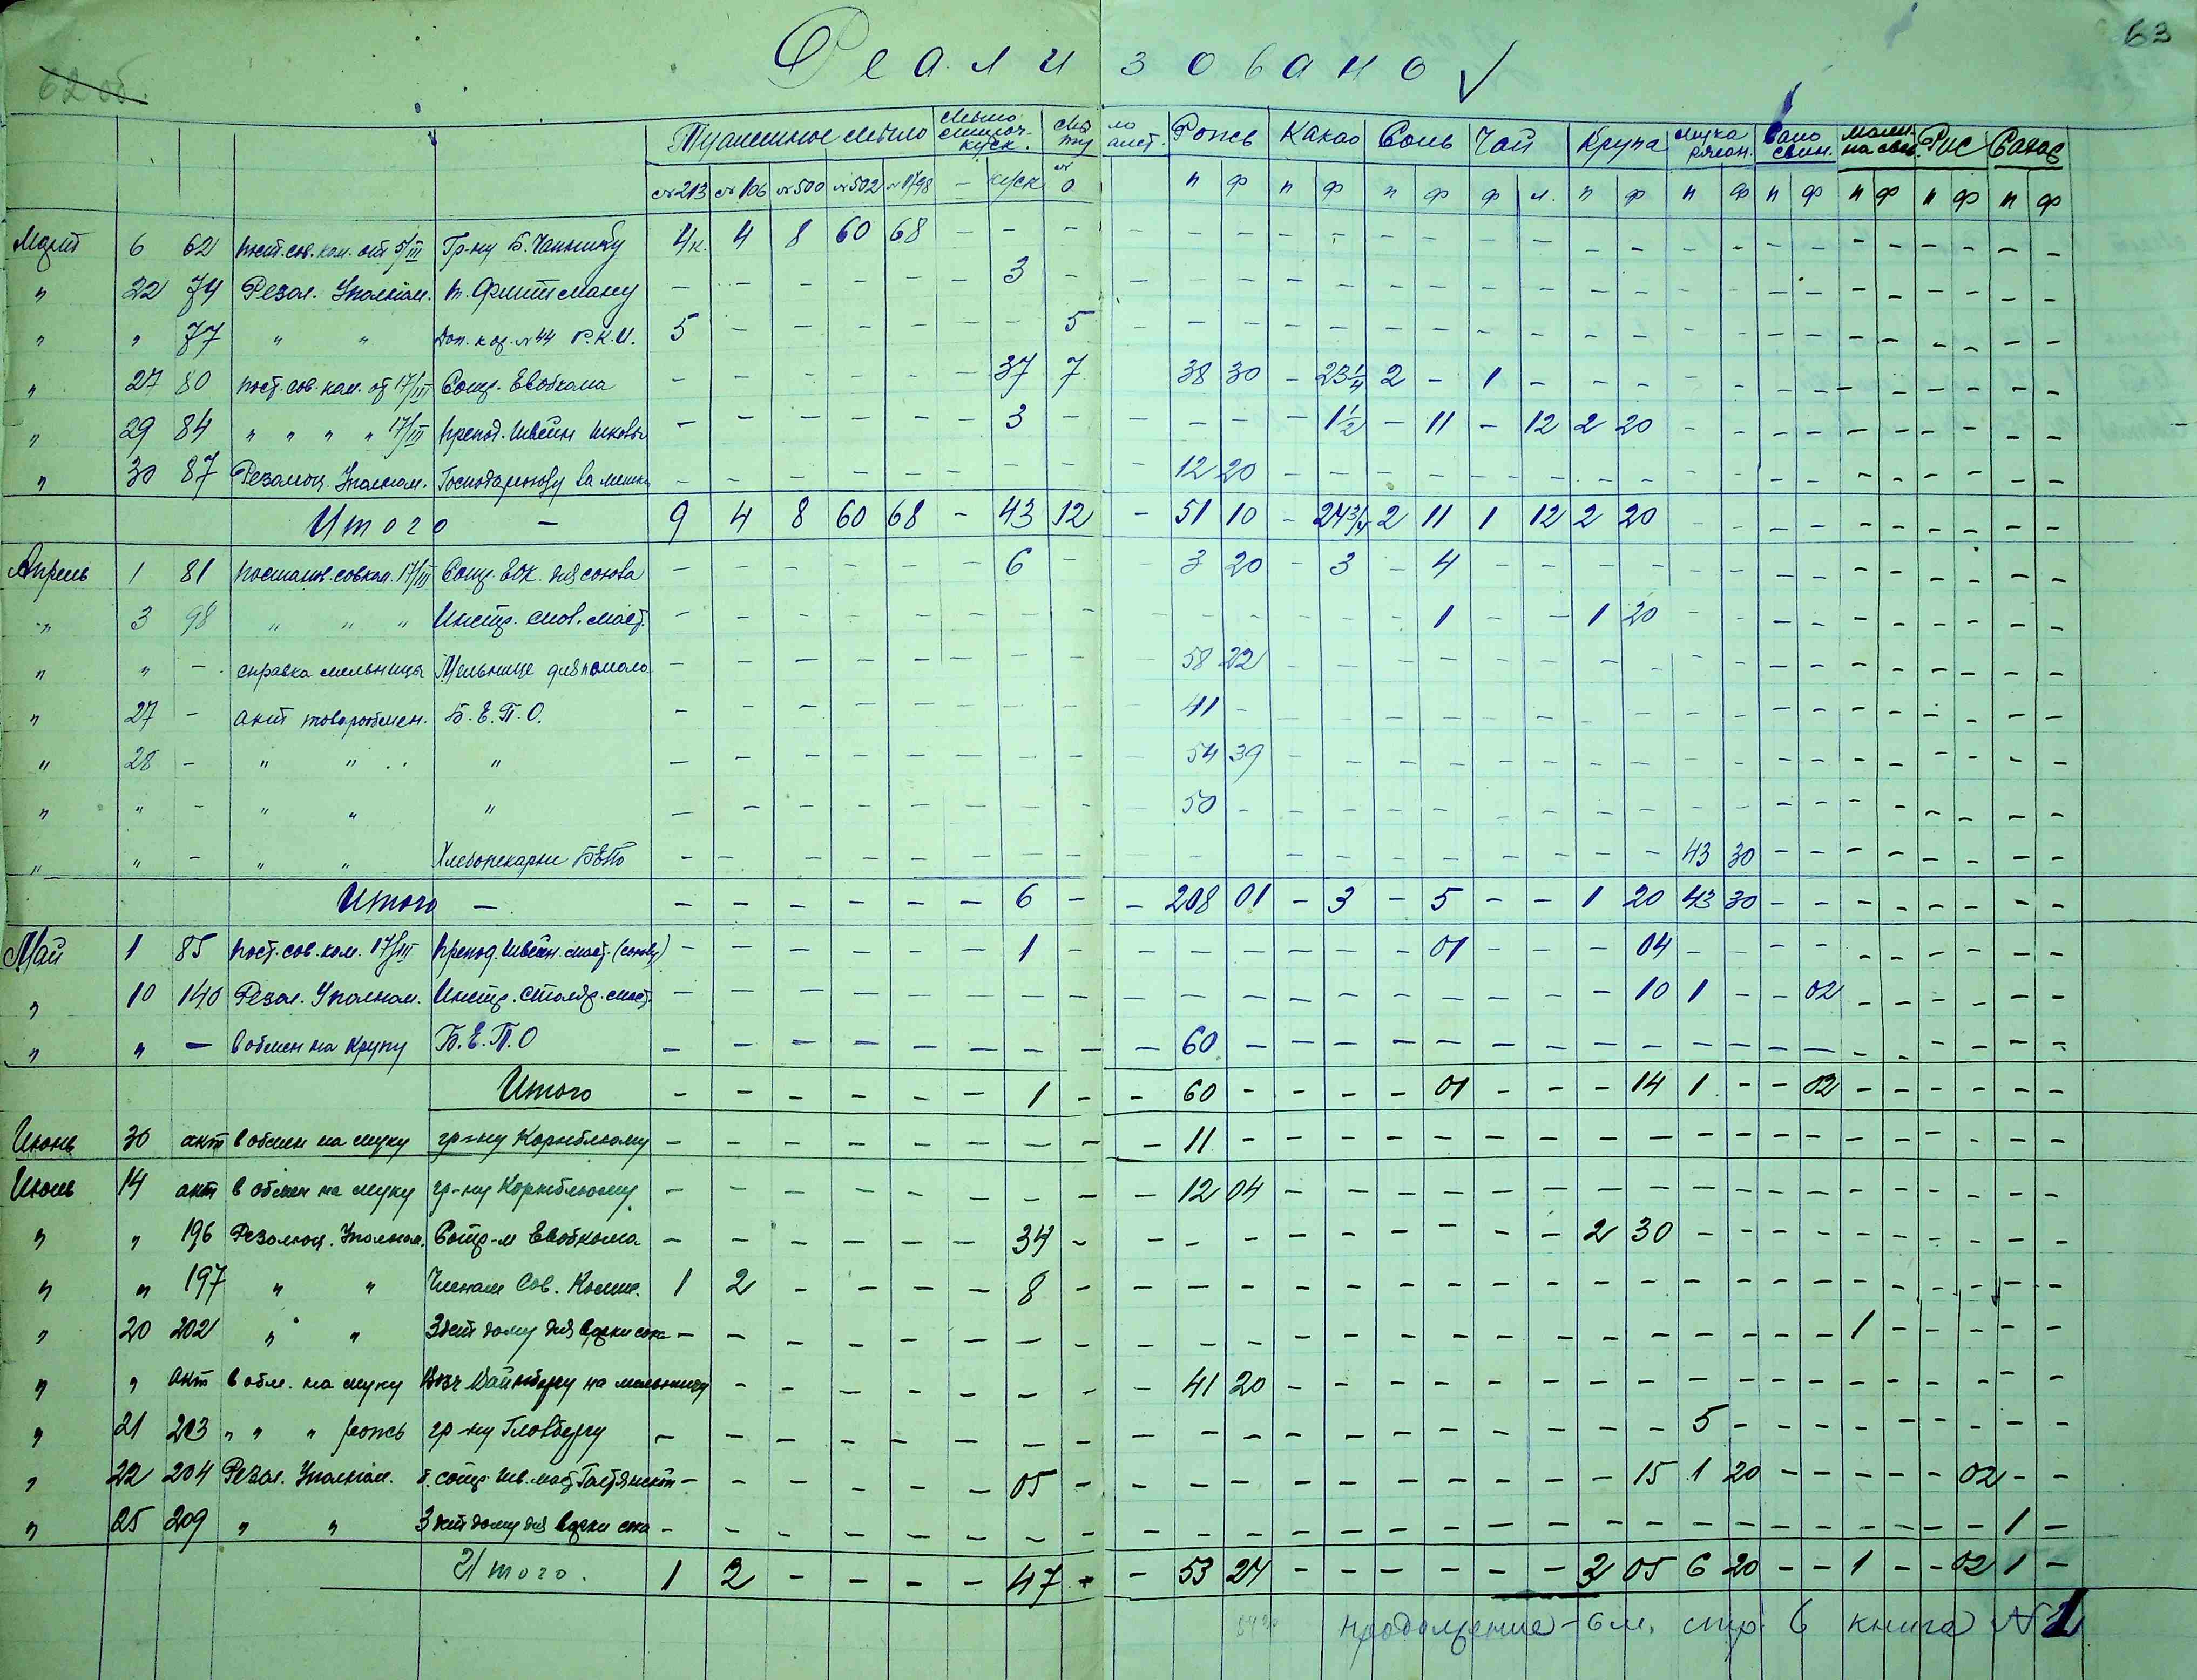 62 об.
63
Реализовано √
Туалетное мыло Мыло стироч. куск. Мы ло ту алет. Рожь Какао Соль Чай Крупа Мука ржан. Сало свин. Рис Сахар
№213 №106 №500 №502 №1798 – куск № 0 п ф п ф п ф ф л. п ф п ф п ф п ф п ф п ф
Март 6 62 Пост. сов. ком. от 5/III Гр-ну 4к. 4 8 60 68 – – – – – – – – – – – – – – – – – – – – – – – –
" 22 74 Резол. Уполном. – – – – – – 3 – – – – – – – – – – – – – – – – – – – – – –
" " 77 " " Доп. кор. №44 Р.К.И. 5 – – – – – – 5 – – – – – – – – – – – – – – – – – – – – –
" 27 80 Пост. сов. ком. от 17/III Сотр. Евобкома – – – – – – 37 7 38 30 – 23¼ 2 – 1 – – – – – – – – – – – – –
" 29 84 " " " " 17/III Препод. Швейн школы – – – – – – 3 – – – – – 1½ – 11 – 12 2 20 – – – – – – – – – –
" 30 87 Резолюц. Уполном. – – – – – – – – – 12 20 – – – – – – – – – – – – – – – – – –
Итого – 9 4 8 60 68 – 43 12 – 51 10 – 24¾ 2 11 1 12 2 20 – – – – – – – – – –
Апрель 1 81 Постанов. сов. ком. 17/III Сотр. ЕОК. для союза – – – – – – 6 – 3 20 – 3 – 4 – – – – – – – – – – – – – –
" 3 98 " " " Инстр. стол. маст. – – – – – – – – – – – – – – 1 – – 1 20 – – – – – – – – – –
" " – справка мельницы Мельнице для помола – – – – – – – – – 58 22 – – – – – – – – – – – – – – – – – –
" 27 – акт товарообмен. Б.Е.П.О. – – – – – – – – – 41 – – – – – – – – – – – – – – – – – – –
" 28 – " " " – – – – – – – – – 54 39 – – – – – – – – – – – – – – – – – –
" " – " " " – – – – – – – – – 50 – – – – – – – – – – – – – – – – – – –
" " – " " Хлебопекарне БЕПО – – – – – – – – – – – – – – – – – – – 43 30 – – – – – – – –
Итого – – – – – – – 6 – – 208 01 – 3 – 5 – – 1 20 43 30 – – – – – – – –
Май 1 85 Пост. сов. ком. 17/III Препод. Швейн. маст. (союзу) – – – – – – 1 – – – – – – – 01 – – – 04 – – – – – – – – – –
" 10 140 Резол. Уполном. Инстр. Столяр. маст. – – – – – – – – – – – – – – – – – – 10 1 – – 02 – – – – – –
" " – в обмен на крупу Б.Е.П.О – – – – – – – – – 60 – – – – – – – – – – – – – – – – – – –
Итого – – – – – – 1 – – 60 – – – – 01 – – – 14 1 – – 02 – – – – – –
Июнь 30 акт в обмен на муку гр-ну Корнблюму – – – – – – – – – 11 – – – – – – – – – – – – – – – – – – –
Июль 14 акт в обмен на муку гр-ну Корнблюму – – – – – – – – – 12 04 – – – – – – – – – – – – – – – – – –
" " 196 Резолюц. Уполном. Сотр-м Евобкома – – – – – – 34 – – – – – – – – – – 2 30 – – – – – – – – – –
" " 197 " " Членам Сов. Комис. 1 2 – – – – 8 – – – – – – – – – – – – – – – – – – – – – –
" 20 202 " " 3 дет дому для варки сока – – – – – – – – – – – – – – – – – – – – – – – 1 – – – – –
" " акт в обм. на муку Вайнбергу на мельницу – – – – – – – – 41 20 – – – – – – – – – – – – – – – – – –
" 21 203 " " " рожь гр-ну Гловбергу – – – – – – – – – – – – – – – – – – – 5 – – – – – – – – –
" 22 204 Резол. Уполном. – – – – – – 05 – – – – – – – – – – – 15 1 20 – – – – – 02 – –
" 25 209 " " 3 дет дому для варки сока – – – – – – – – – – – – – – – – – – – – – – – – – – – 1 –
Итого. 1 2 – – – – 47 – – 53 24 – – – – – – 3 05 6 20 – – 1 – – 02 1 –
продолжение – см. стр. 6 книга №1